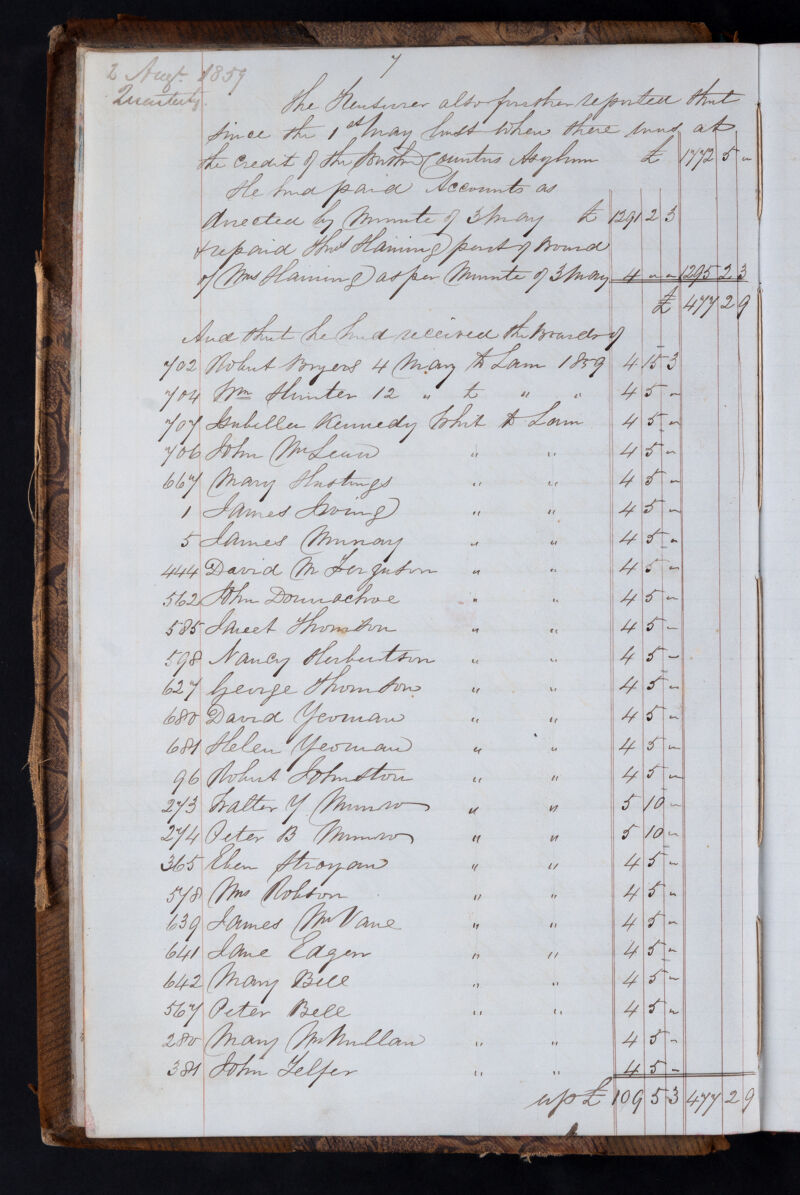 7
2 Augt. 1859
Quarterly.
The Treasurer also further reported that
since the 1st May last when there was at
the Credit of the Southn Counties Asylum £ 1772 5 "
He had paid Accounts as
directed by Minute of 3 May £ 1291 2 3
& repaid Thos Haining part of Board
of Mrs Haining as per Minute of 3 May 4 " " 1295 2 3
£ 477 2 9
And that he had received the Boards of
702 Robert Bryers 4 May to Lam 1859 4 15 3
704 Wm Hunter 12 " to " " 4 5 "
707 Isabella Kennedy Whit to Lam 4 5 "
706 John McLean " " 4 5 "
667 Mary Hastings " " 4 5 "
1 James Irving " " 4 5 "
5 James Murray " " 4 5 "
444 David M Ferguson " " 4 5 "
562 John Donnachoe " " 4 5 "
585 Janet Thomson " " 4 5 "
598 Nancy Herbertson " " 4 5 "
627 George Thomson " " 4 5 "
680 David Yeoman " " 4 5 "
681 Helen Yeoman " " 4 5 "
96 Robert Johnston " " 4 5 "
273 Walter Y Munro " " 5 10 "
274 Peter B Munro " " 5 10 "
365 Eben Stroyan " " 4 5 "
578 Mrs Robson " " 4 5 "
639 James McVane " " 4 5 "
641 Jane Edgar " " 4 5 "
642 Mary Bell " " 4 5 "
567 Peter Bell " " 4 5 "
280 Mary McMillan " " 4 5 "
381 John Telfer " " 4 5 "
up £ 109 5 3 477 2 9